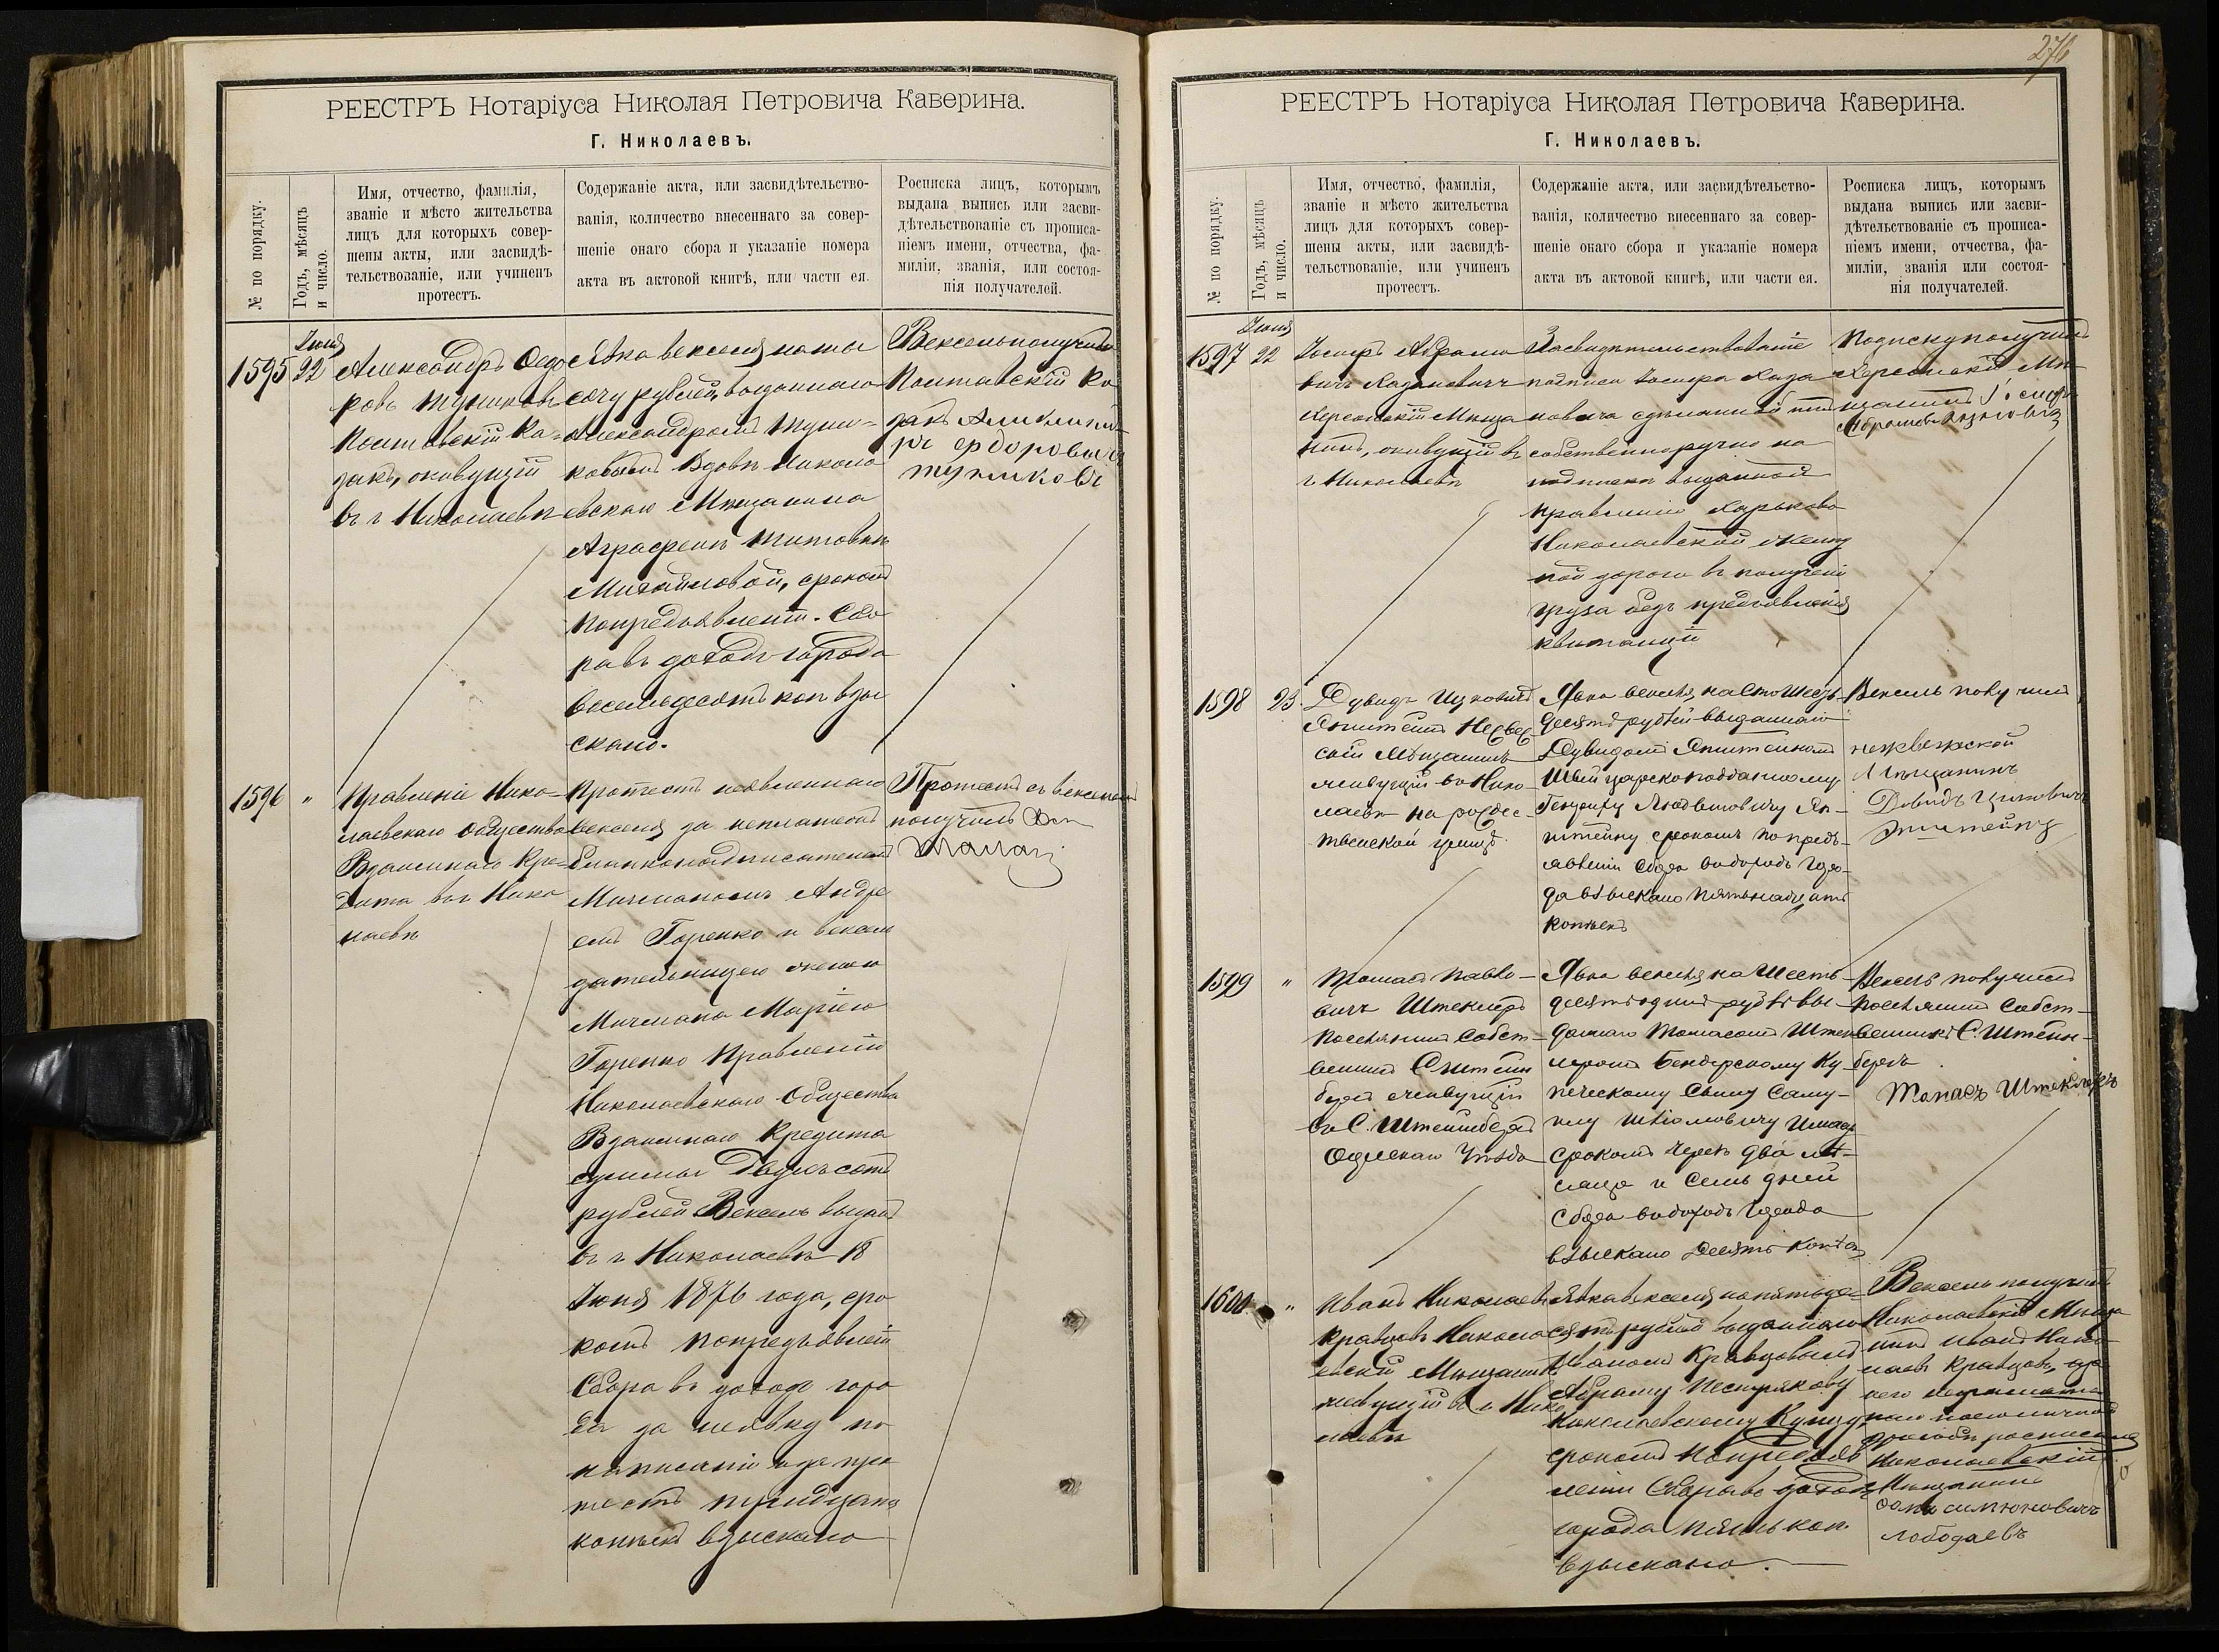 РЕЕСТРЪ Нотаріуса Николая Петровича Каверина.
Г. Николаевъ.
№ по порядку.
Годъ, мѣсяцъ
и число.
Имя, отчество, фамилія,
званіе и мѣсто жительства
лицъ для которыхъ совер-
шены акты, или засвидѣ-
тельствованіе, или учиненъ
протестъ.
Содержаніе акта, или засвидѣтельство-
ванія, количество внесеннаго за совер-
шеніе онаго сбора и указаніе номера
акта въ актовой книгѣ, или части ея.
Росписка лицъ, которымъ
выдана выпись или засви-
дѣтельствованіе съ прописа-
ніемъ имени, отчества, фа-
миліи, званія, или состоя-
нія получателей.
1595
Іюня
22
Александръ Ѳедо
ровъ Тупиковъ
Полтавскій Ка-
закъ, живущій
въ г Николаевѣ
Явка векселя на
рублей, выданнаго
Александромъ Тупи-
ковымъ Вдовѣ Никола
евскаго Мѣщанина
Аграфенѣ Титовнѣ
Михайловой, срокомъ
попредъявленіи. Сбо
ра въ доходъ города
восемьдесятъ коп взы
скано.
Вексель получилъ
Полтавскій Ка
закъ Александ
ръ Федоровичъ
Тупиковъ
1596
"
Правленіе Нико-
лаевскаго Общества
Взаимнаго Кре-
дита въ г Нико
лаевѣ
Протестъ неявленнаго
векселя за неплатежъ
Бланконадписателемъ
Мичманомъ Андре
емъ Горенко и вексел
дательницею женою
Мичмана Маріею
Горенко Правленію
Николаевскаго Общества
Взаимнаго Кредита
суммы Двухъ сотъ
рублей Вексель выданъ
въ г Николаевѣ 18
Іюня 1876 года, сро
комъ попредъявленіи
Сбора въ доходъ горо
да за неявку по
написаніи и за про
тестъ тридцать
копѣекъ взыскано
Протестъ съ векселемъ
получилъ
276
РЕЕСТРЪ Нотаріуса Николая Петровича Каверина.
Г. Николаевъ.
№ по порядку.
Годъ, мѣсяцъ
и число.
Имя, отчество, фамилія,
званіе и мѣсто жительства
лицъ для которыхъ совер-
шены акты, или засвидѣ-
тельствованіе, или учиненъ
протестъ.
Содержаніе акта, или засвидѣтельство-
ванія, количество внесеннаго за совер-
шеніе онаго сбора и указаніе номера
акта въ актовой книгѣ, или части ея.
Росписка лицъ, которымъ
выдана выпись или засви-
дѣтельствованіе съ прописа-
ніемъ имени, отчества, фа-
миліи, званія или состоя-
нія получателей.
1597
Іюня
22
Іосифъ Абрамо
вичъ Хазановичъ
Херсонскій Мѣща
нинъ, живущій въ
г Николаевѣ
Засвидѣтельствованіе
подписи Іосифа Хаза
новича сдѣланной имъ
собственноручно на
подпискѣ выданной
правленію Харьково
Николаевской желѣз
ной дороги въ полученіи
груза безъ предъявленія
квитанціи
Подписку получилъ
Херсонскій Мѣ
щанинъ Іосифъ
1598
23
Дувидъ Ицковичъ
Эпштейнъ
Мѣщанинъ
живущій въ Нико
лаевѣ на рождес-
твенской улицѣ.
Явка векселя на Сто Шесть
Десятъ рублей выданнаго
Дувидомъ Эпштейномъ
Швейцарскоподданному
Гендриху Людвиговичу Эп-
штейну срокомъ по предъ-
явленіи Сбора въ доходъ Горо-
да взыскано пятьнадцать
копѣекъ
Вексель получилъ
Мѣщанинъ
Давидъ Ицковичъ
1599
"
Томасъ Павло-
вичъ Штеклеръ
Поселянинъ Собст-
венникъ С Штейн
бергъ живущій
въ С. Штейнбергѣ
Одесскаго Уѣзда
Явка векселя на Шесть
десятъ одинъ рубль вы-
даннаго Томасомъ Штек
леромъ Бендерскому Ку-
печескому Сыну Саму-
илу Шліомовичу
срокомъ Черезъ два мѣ-
сяца и Семь дней
Сбора въ доходъ Города
взыскано Десять копѣекъ
Вексель получилъ
Поселянинъ Собст-
венникъ С. Штейн-
бергъ
Томасъ Штеклеръ
1600
"
Иванъ Николаевъ
Кравцовъ Никола
евскій Мѣщанинъ
живущій въ г Нико
лаевѣ
Явка векселя на пятьде-
сятъ рублей выданнаго
Иваномъ Кравцовымъ
Абраму Пестрякову
Николаевскому Купцу
срокомъ попредъяв
леніи Сбора въ доходъ
города пять коп.
взыскано.
Вексель получилъ
Николаевскій Мѣща
нинъ Иванъ Нико
лаевъ Кравцовъ, а за
него неграмотна
го по его личной
просьбѣ росписался
Николаевскій
Мѣщанинъ
Лободаевъ